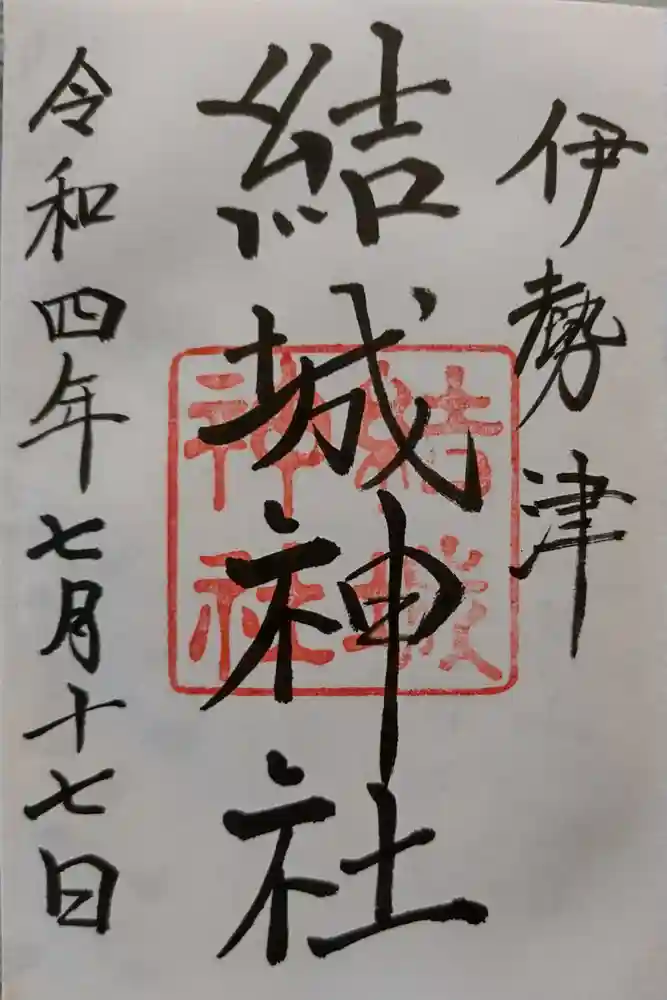 伊勢津
結城神社
結城神社
令和四年七月十七日